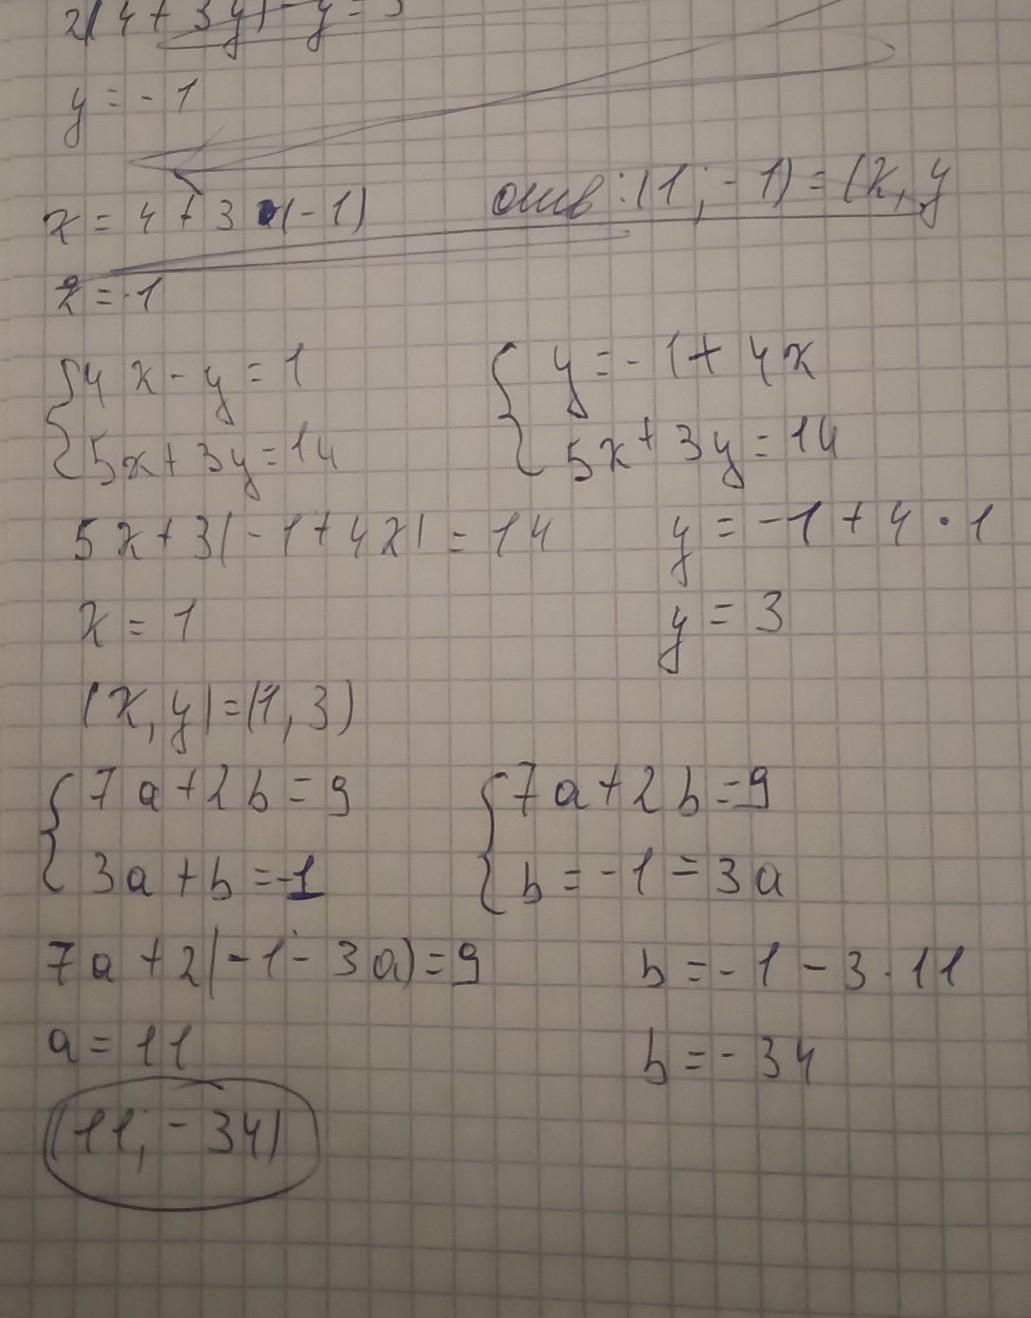 2(4+3y)-y=3
y=-1
x=4+3(-1) отв:(1;-1)=(x,y
x=1
{4x-y=1 {y=-1+4x
{5x+3y=14 {5x+3y=14
5x+3(-1+4x)=14 y=-1+4·1
x=1 y=3
(x,y)=(1,3)
{7a+2b=9 {7a+2b=9
{3a+b=-1 {b=-1-3a
7a+2(-1-3a)=9 b=-1-3·11
a=11 b=-34
(11;-34)